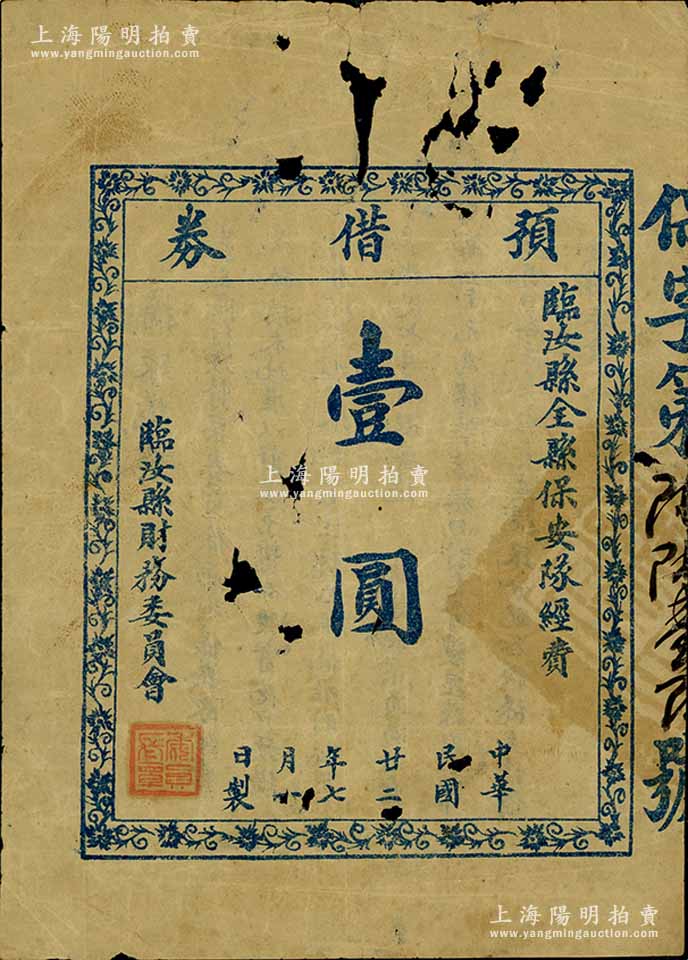 上海陽明拍賣
www.yangmingauction.com
預借券
臨汝縣全縣保安隊經費
壹圓
臨汝縣財務委員會
中華
民國
廿二
年七
月八
日製
字第
號
上海陽明拍賣
www.yangmingauction.com
上海陽明拍賣
www.yangmingauction.com